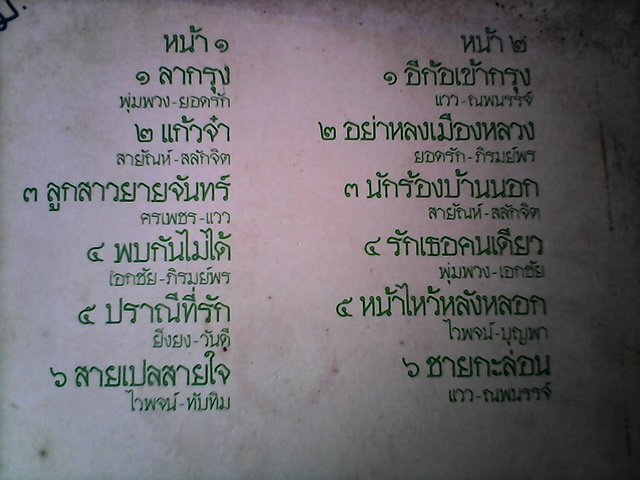 หน้า ๑
๑ ลากรุง
พุ่มพวง-ยอดรัก
๒ แก้วจ๋า
สายัณห์-สลักจิต
๓ ลูกสาวยายจันทร์
ศรเพชร-แวว
๔ พบกันไม่ได้
เอกชัย-ภิรมย์พร
๕ ปราณีที่รัก
ยิ่งยง-วันดี
๖ สายเปลสายใจ
ไวพจน์-ทับทิม
หน้า ๒
๑ อีก้อเข้ากรุง
แวว-ณพนรรจ์
๒ อย่าหลงเมืองหลวง
ยอดรัก-ภิรมย์พร
๓ นักร้องบ้านนอก
สายัณห์-สลักจิต
๔ รักเธอคนเดียว
พุ่มพวง-เอกชัย
๕ หน้าไหว้หลังหลอก
ไวพจน์-บุญพา
๖ ชายกะล่อน
แวว-ณพนรรจ์